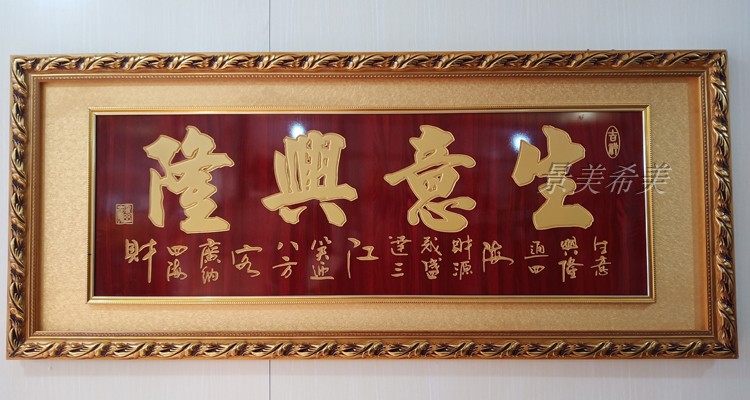 生意興隆
吉祥
生意
興隆
通四
海
財源
茂盛
達三
江
笑迎
八方
客
廣納
四海
財
景美希美